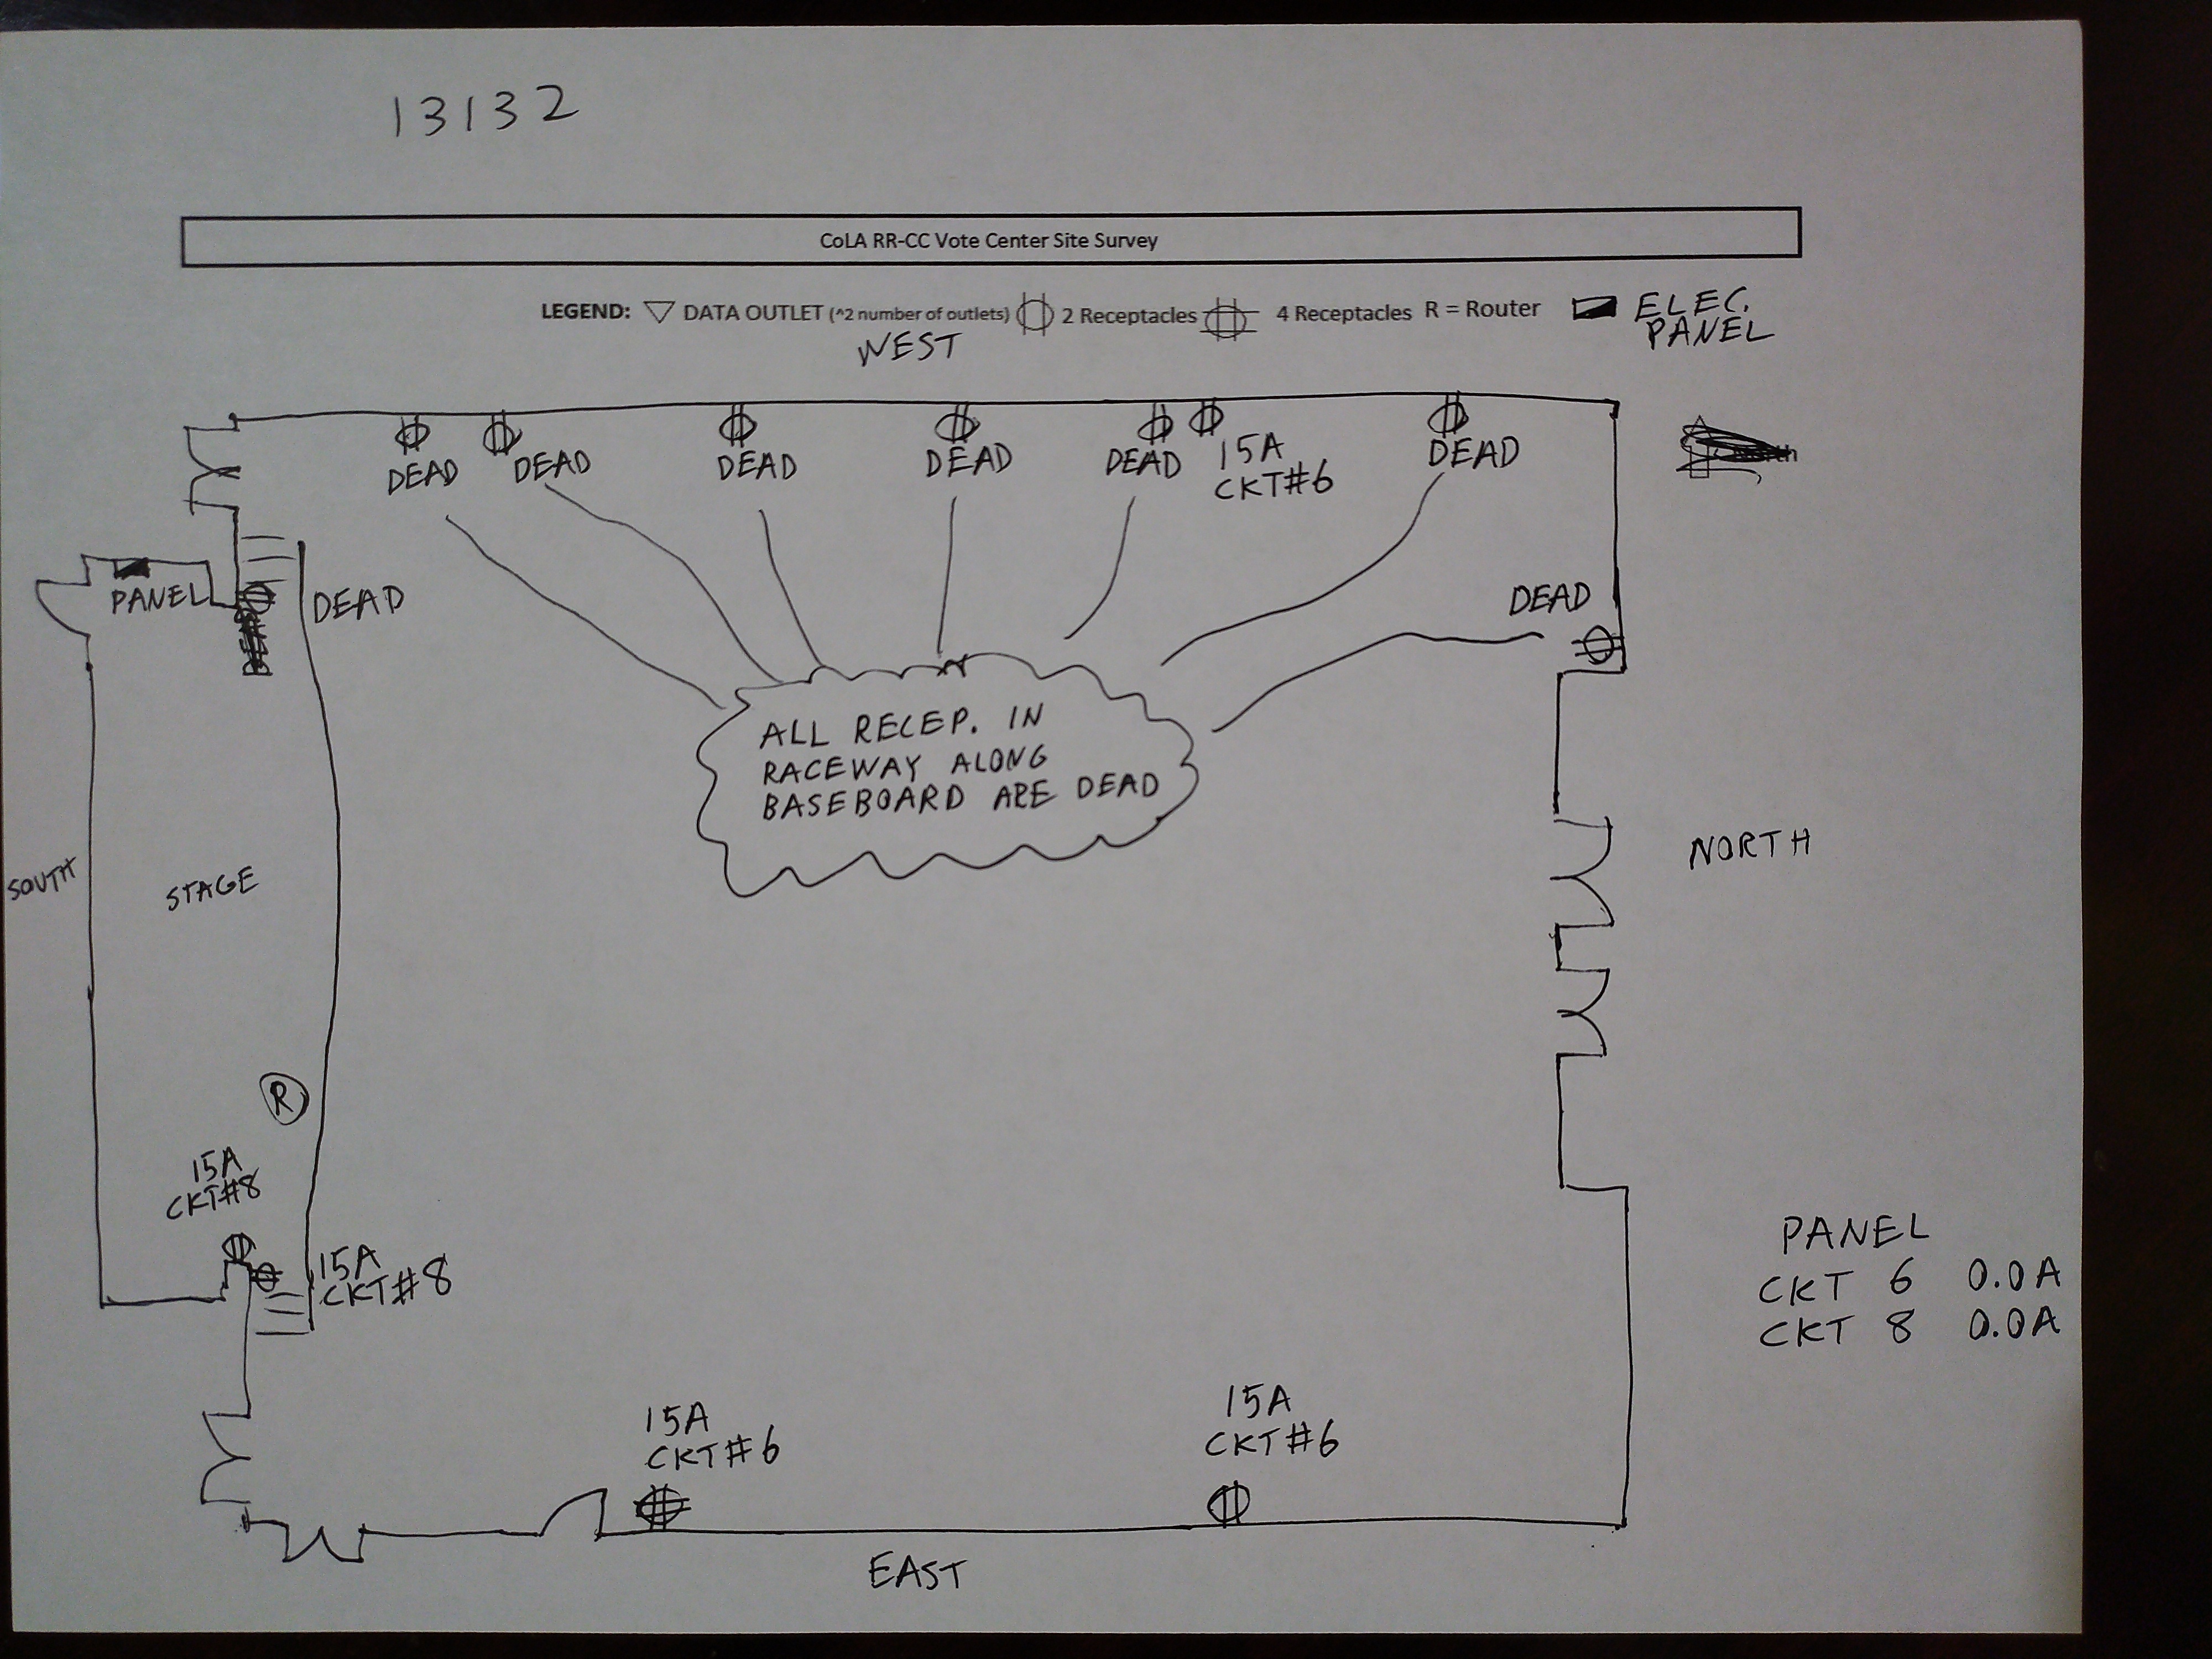 13132
CoLA RR-CC Vote Center Site Survey
LEGEND: DATA OUTLET (^2 number of outlets) 2 Receptacles 4 Receptacles R = Router ELEC.
PANEL
WEST
DEAD DEAD DEAD DEAD DEAD 15A
CKT#6
DEAD
PANEL
DEAD
DEAD
ALL RECEP. IN
RACEWAY ALONG
BASEBOARD ARE DEAD
NORTH
SOUTH
STAGE
R
15A
CKT#8
15A
CKT#8
PANEL
CKT 6 0.0A
CKT 8 0.0A
15A
CKT#6
15A
CKT#6
EAST